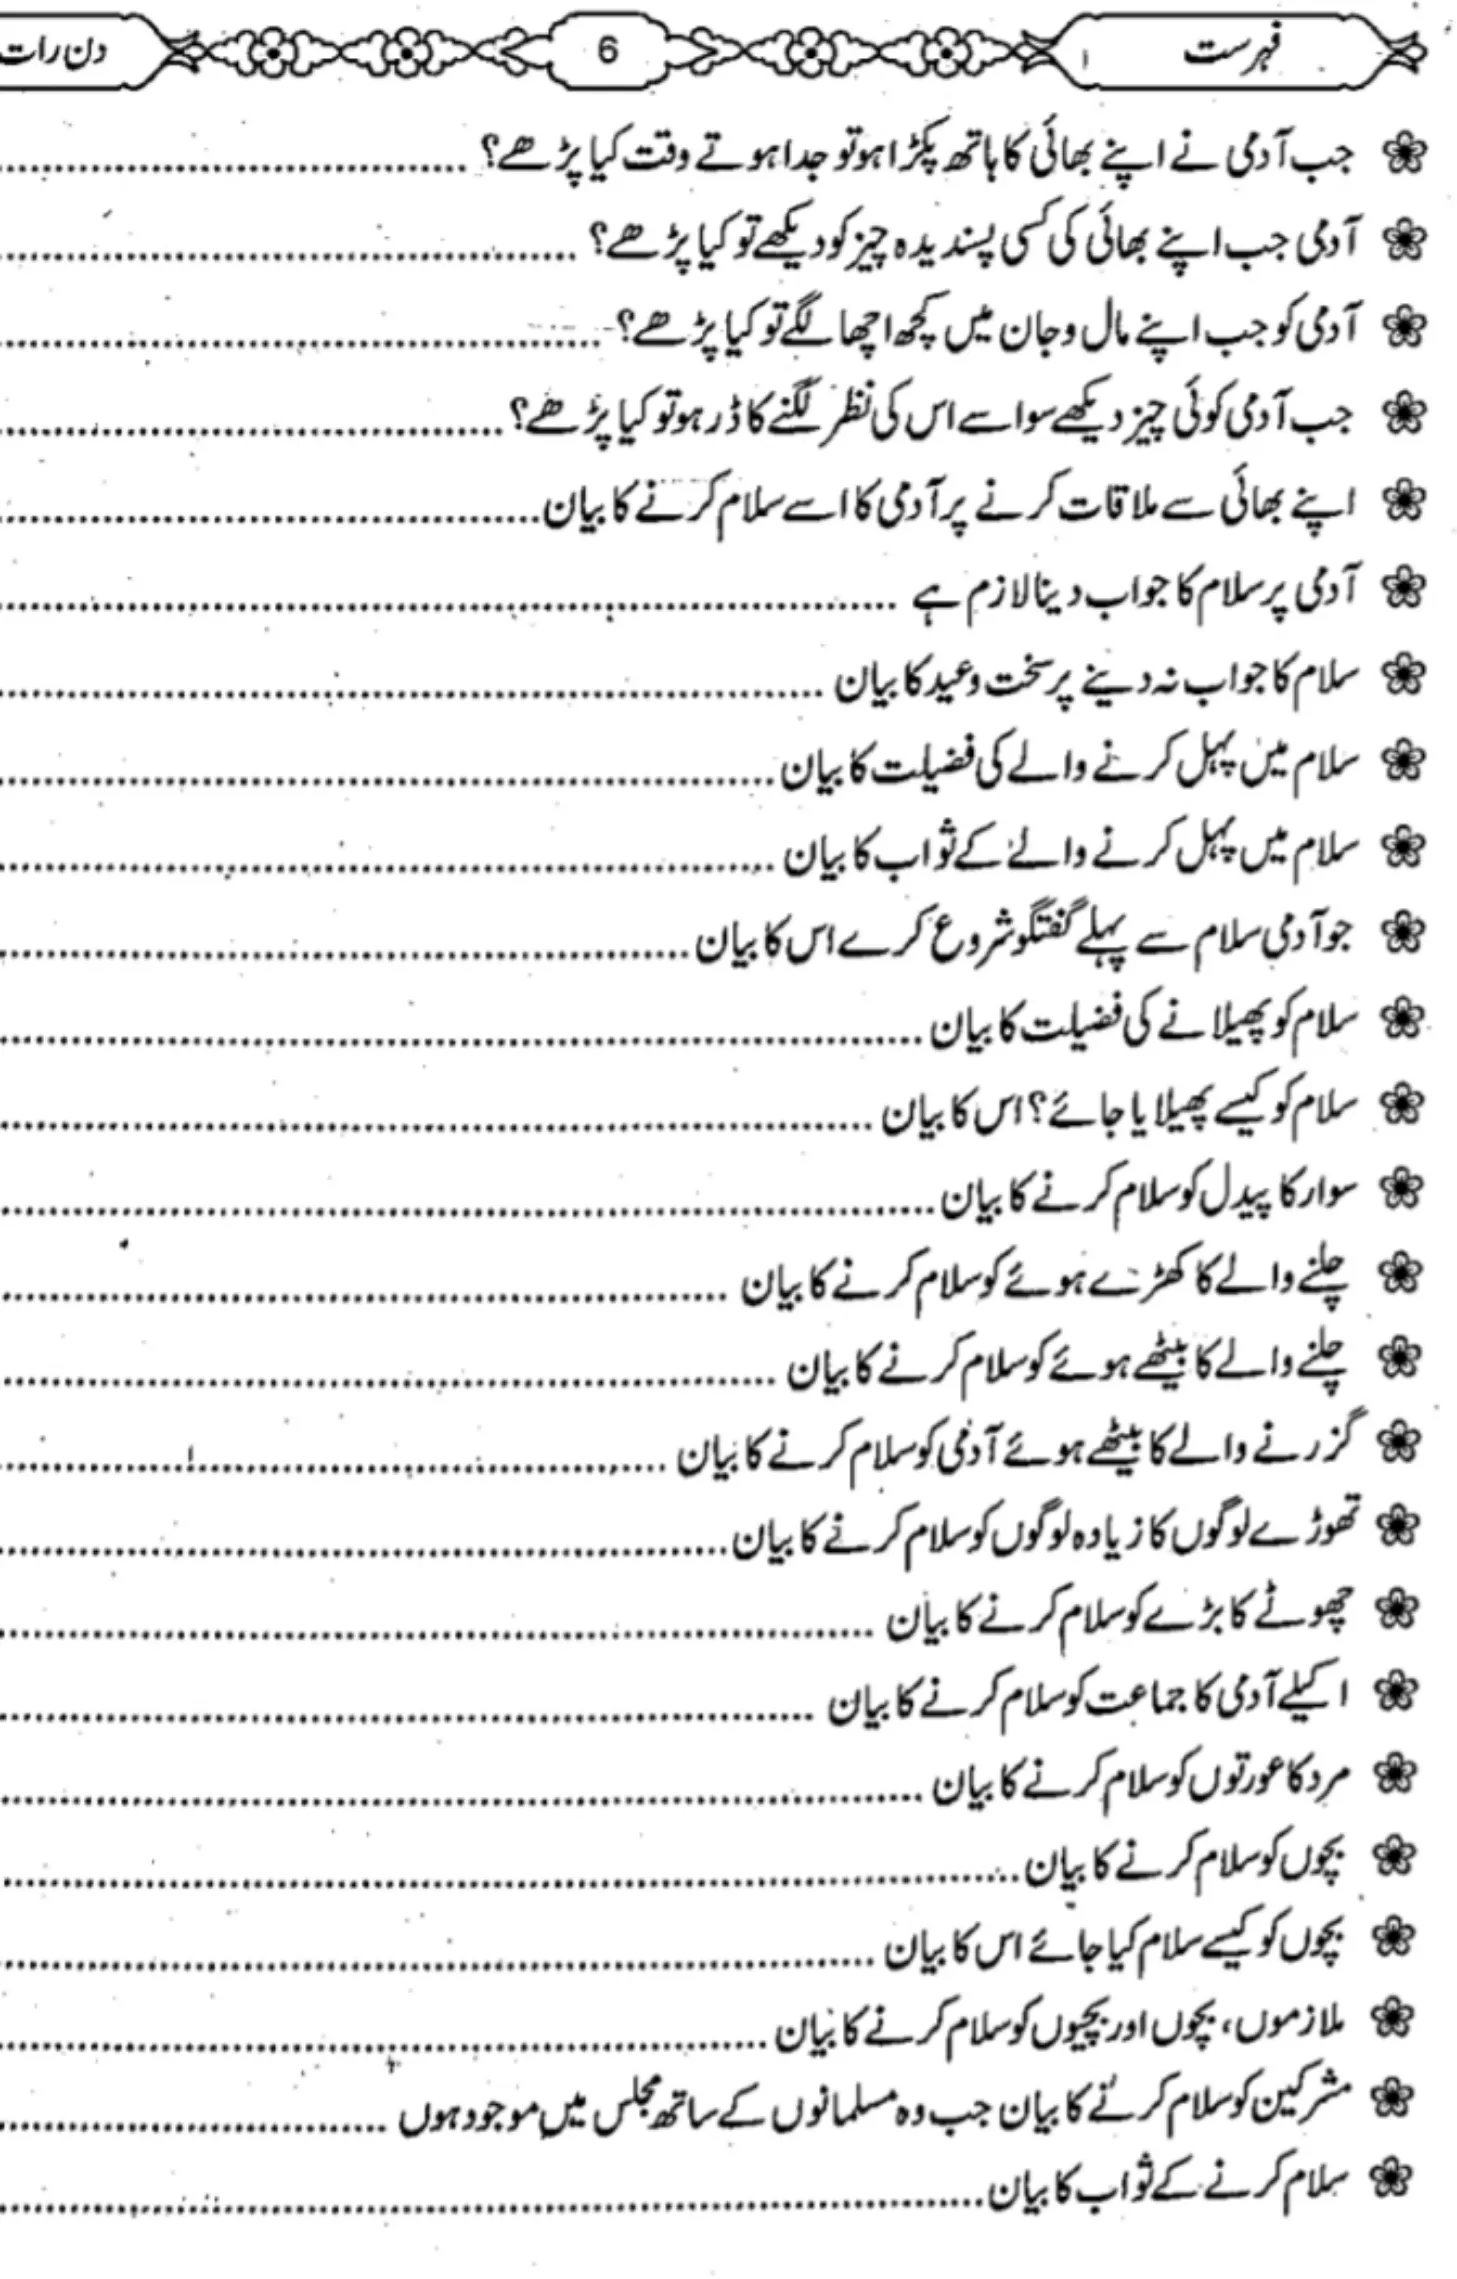 فہرست 6 دن رات
جب آدمی نے اپنے بھائی کا ہاتھ پکڑا ہو تو جدا ہوتے وقت کیا پڑھے؟
آدمی جب اپنے بھائی کی کسی پسندیدہ چیز کو دیکھے تو کیا پڑھے؟
آدمی کو جب اپنے مال و جان میں کچھ اچھا لگے تو کیا پڑھے؟
جب آدمی کوئی چیز دیکھے سو اسے اس کی نظر لگنے کا ڈر ہو تو کیا پڑھے؟
اپنے بھائی سے ملاقات کرنے پر آدمی کا اسے سلام کرنے کا بیان
آدمی پر سلام کا جواب دینا لازم ہے
سلام کا جواب نہ دینے پر سخت وعید کا بیان
سلام میں پہل کرنے والے کی فضیلت کا بیان
سلام میں پہل کرنے والے کے ثواب کا بیان
جو آدمی سلام سے پہلے گفتگو شروع کرے اس کا بیان
سلام کو پھیلانے کی فضیلت کا بیان
سلام کو کیسے پھیلایا جائے؟ اس کا بیان
سوار کا پیدل کو سلام کرنے کا بیان
چلنے والے کا کھڑے ہوئے کو سلام کرنے کا بیان
چلنے والے کا بیٹھے ہوئے کو سلام کرنے کا بیان
گزرنے والے کا بیٹھے ہوئے آدمی کو سلام کرنے کا بیان
تھوڑے لوگوں کا زیادہ لوگوں کو سلام کرنے کا بیان
چھوٹے کا بڑے کو سلام کرنے کا بیان
اکیلے آدمی کا جماعت کو سلام کرنے کا بیان
مرد کا عورتوں کو سلام کرنے کا بیان
بچوں کو سلام کرنے کا بیان
بچوں کو کیسے سلام کیا جائے اس کا بیان
ملازموں، بچوں اور بچیوں کو سلام کرنے کا بیان
مشرکین کو سلام کرنے کا بیان جب وہ مسلمانوں کے ساتھ مجلس میں موجود ہوں
سلام کرنے کے ثواب کا بیان